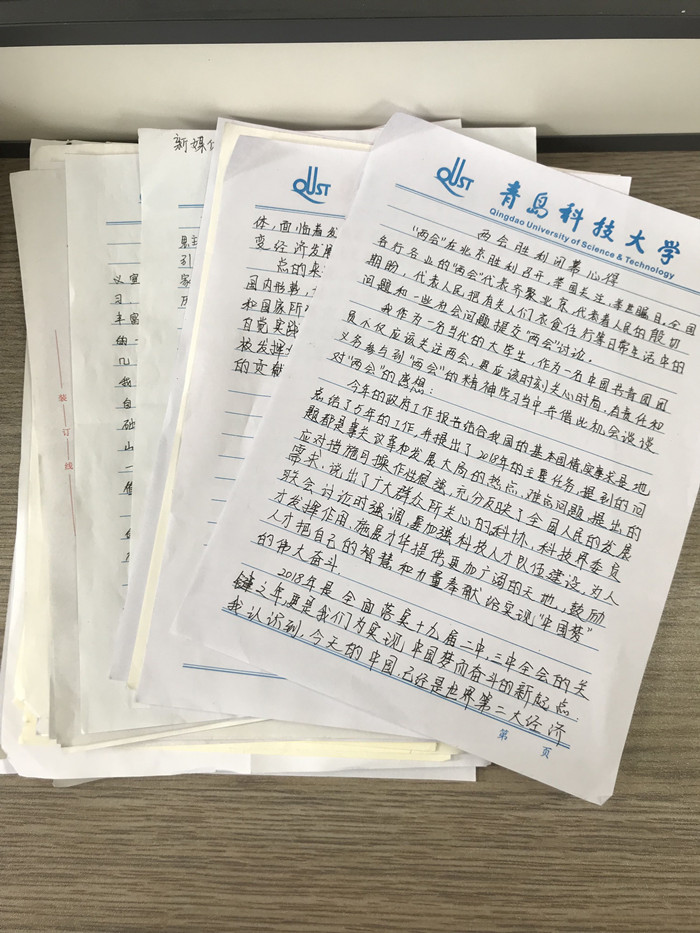 QUST
青岛科技大学
Qingdao University of Science & Technology
两会胜利闭幕心得
“两会”在北京胜利召开,举国关注,举世瞩目,全国
各行各业的“两会”代表齐聚北京,代表着人民的殷切
期盼,代表人民把有关人们衣食住行等日常生活中的
问题和一些社会问题提交“两会”讨论。
我作为一名当代的大学生,作为一名中国共青团团
员不仅应该关注两会,更应该时刻关心时局,有责任和
义务参与到“两会”的精神学习当中并借此机会谈谈
对“两会”的感想:
今年的政府工作报告结合我国的基本国情实事求是地
总结了5年的工作,并提出了2018年的主要任务,提到的问
题都是事关改革和发展大局的热点、难点问题,提出的
应对措施可操作性很强,充分反映了全国人民的发展
需求,说出了广大群众所关心的科协、科技界委员
联会讨论时强调,要加强科技人才队伍建设,为人
才发挥作用、施展才华提供更加广阔的天地,鼓励
人才把自己的智慧和力量奉献给实现“中国梦”
的伟大奋斗.
2018年是全面落实十九届二中、三中全会的关
键之年,更是我们为实现中国梦而奋斗的新起点.
我认识到,今天的中国,已经是世界第二大经济
第 页
QUST
体,面临着发
变经济发展
点的来
国内形势,
和国家所
自觉实践
极发挥
的贡献
新媒体
思
引
家
历
义宣
习,
丰富
的一
几
我
自
砂
山
一
值
装
订
线